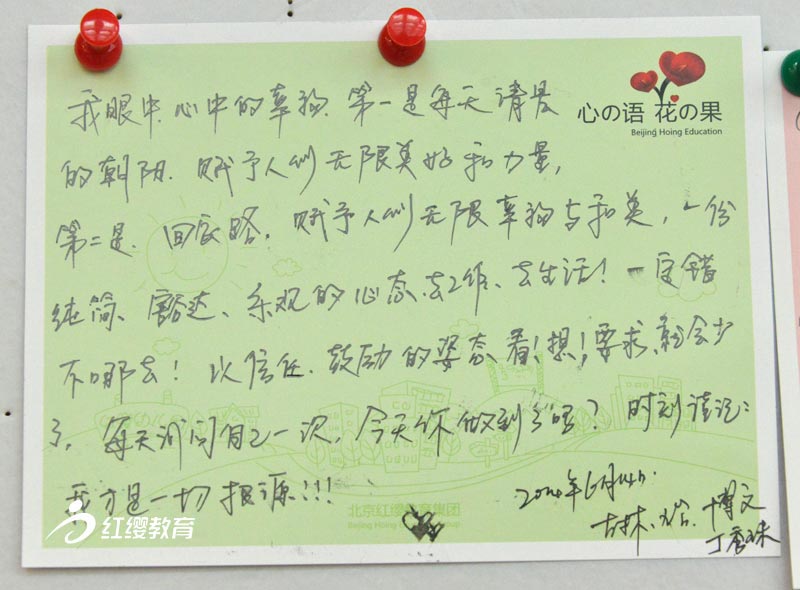 心の语 花の果
Beijing Hoing Education
我眼中、心中的幸福、第一是每天清晨
的朝阳、赋予人们无限美好和力量,
第二是、回家路,赋予人们无限幸福与和美,一份
纯简、豁达、乐观的心态、去工作、去生活!一定错
不哪去!以信任、鼓励的姿态、看!想!要求、就会少
了,每天问问自己一次,今天你做到了吗?时刻谨记:
我才是一切根源!!!
北京红缨教育集团
红缨教育
年6月14日.
吉林、 博文
丁秀珠